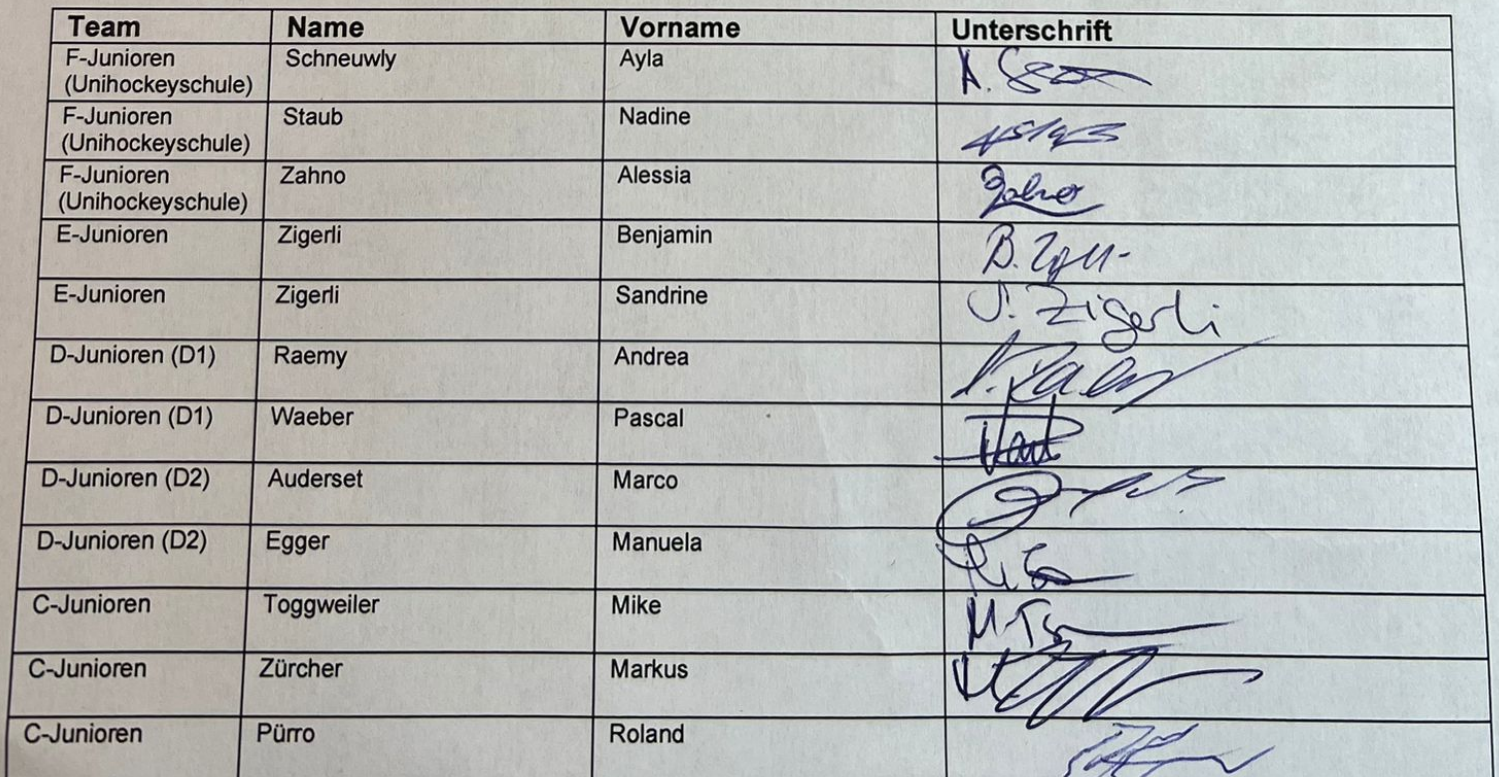 Team Name Vorname Unterschrift
F-Junioren Schneuwly Ayla
(Unihockeyschule)
F-Junioren Staub Nadine
(Unihockeyschule)
F-Junioren Zahno Alessia Zahno
(Unihockeyschule)
E-Junioren Zigerli Benjamin
E-Junioren Zigerli Sandrine S. Zigerli
D-Junioren (D1) Raemy Andrea
D-Junioren (D1) Waeber Pascal
D-Junioren (D2) Auderset Marco
D-Junioren (D2) Egger Manuela
C-Junioren Toggweiler Mike
C-Junioren Zürcher Markus
C-Junioren Pürro Roland